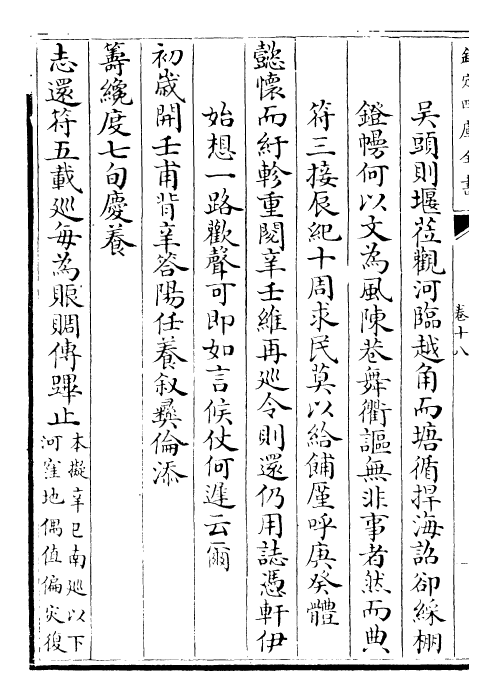 欽定四庫全書
卷十八
吳頭則堰莅觀河臨越角而塘循捍海詔卻綵棚
鐙幔何以文為風陳巷舞衢謳無非事者然而典
符三接辰紀十周求民莫以給餔廑呼庚癸體
懿懷而紆軫重閱辛壬維再巡令則還仍用誌憑軒伊
始想一路歡聲可即如言候仗何遲云爾
初歲開壬甫背辛答陽任養叙彞倫添
籌纔度七旬慶養
志還符五載巡每為賑賙傳蹕止本擬辛巳南巡以下
河窪地偶值偏災復